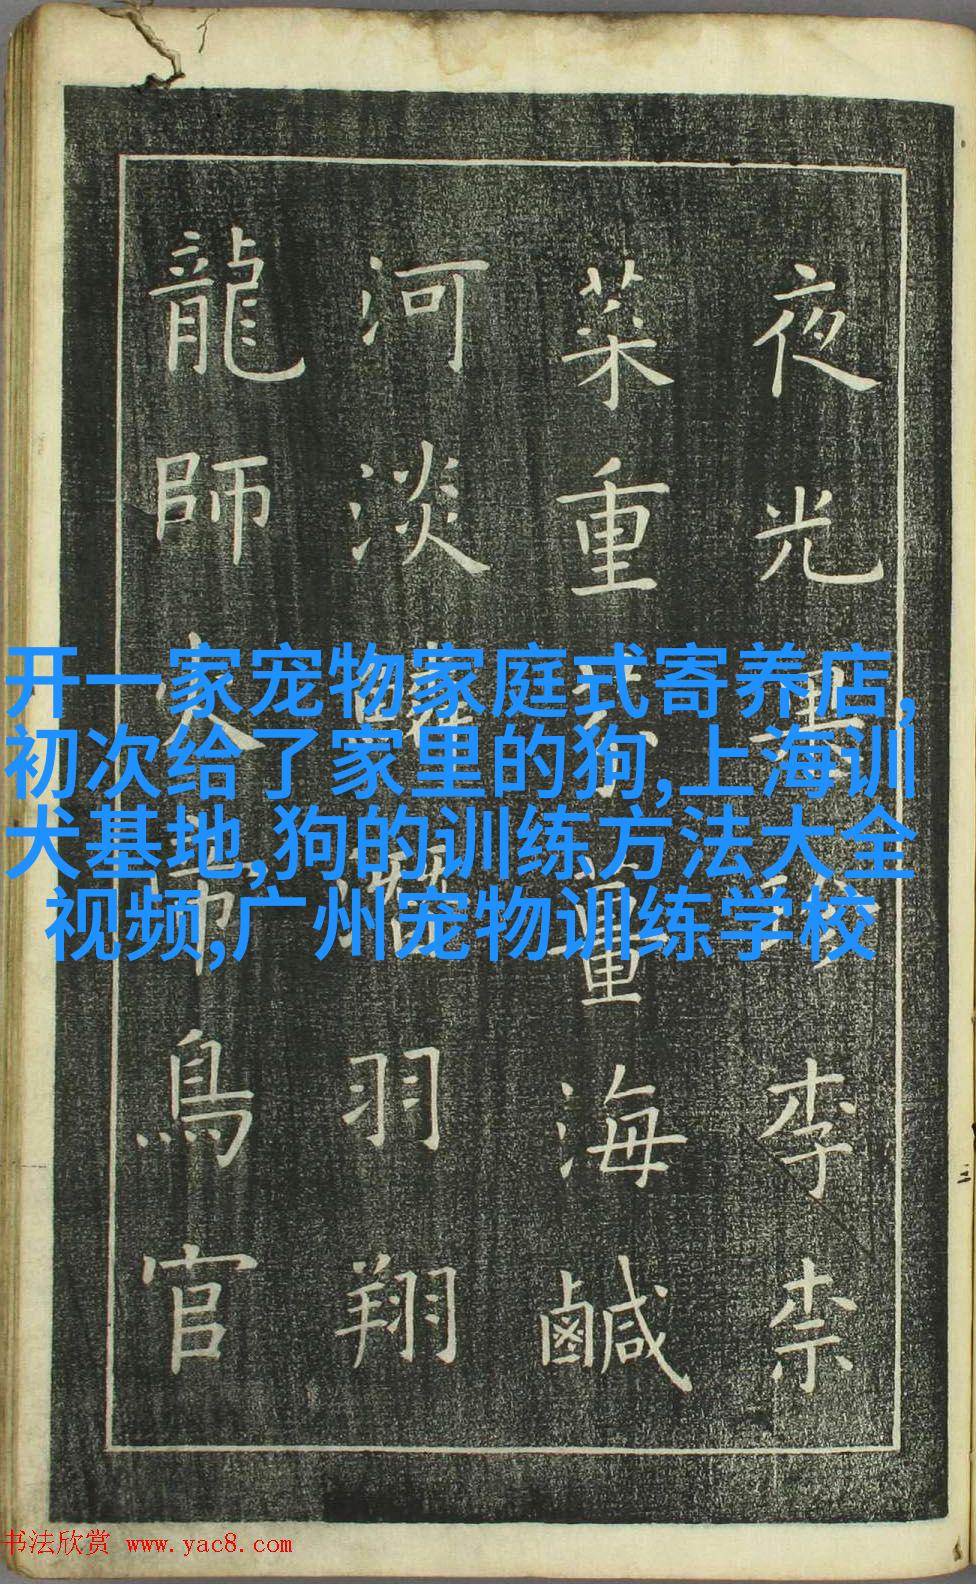 夜光果李柰
菜重薑海鹹
河淡羽翔
龍師火帝鳥官
开一家宠物家庭式寄养店,
初次给了家里的狗,上海训
犬基地,狗的训练方法大全
视频,广州宠物训练学校
书法欣赏 www.yac8.com